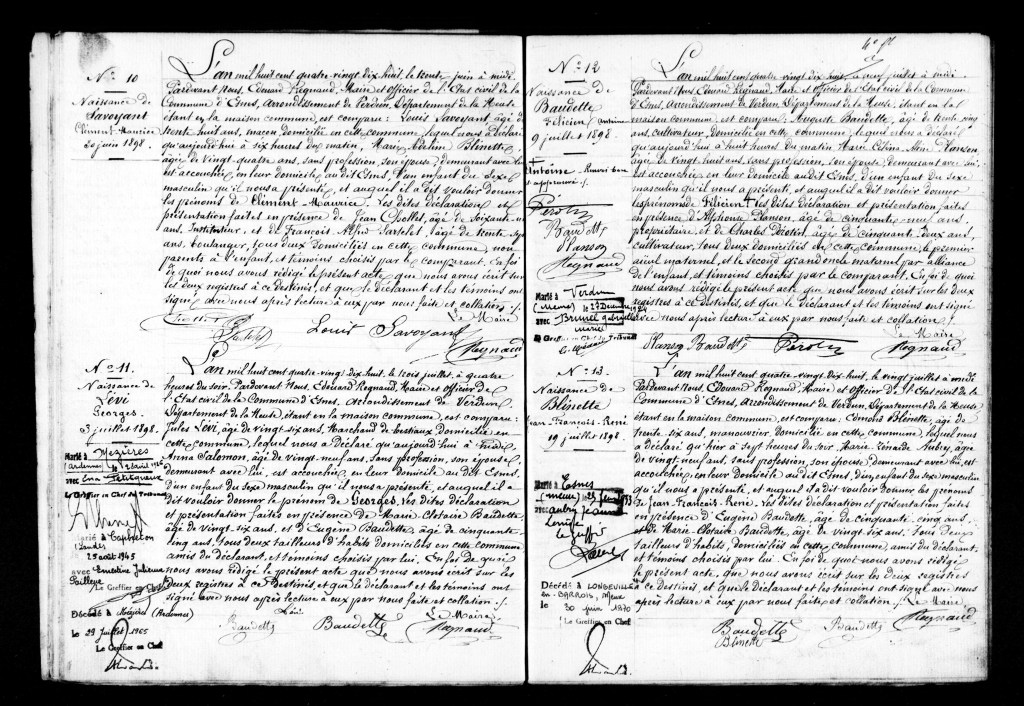 N° 10
Naissance de
Savoyant
Clément-Maurice
30 juin 1898.
L'an mil huit cent quatre-vingt dix huit, le trente juin à midi
Pardevant Nous, Edouard Regnaud, Maire et officier de l'Etat civil de la
Commune d'Esnes, Arrondissement de Verdun, Département de la Meuse
étant en la maison commune, est comparu: Louis Savoyant, âgé de
trente huit ans, maçon domicilié en cette commune, lequel nous a déclaré
qu'aujourd'hui à six heures du matin, Marie Blinette,
âgée de vingt-quatre ans, sans profession, son épouse, demeurant avec lui
est accouchée en leur domicile au dit Esnes, d'un enfant du sexe
masculin qu'il nous a présenté, et auquel il a dit vouloir donner
les prénoms de Clément-Maurice. Les dites déclaration et
présentation faites en présence de Jean Collet, âgé de soixante-un
ans, Instituteur, et de François Alfred, âgé de trente sept
ans, boulanger, tous deux domiciliés en cette commune, non
parents à l'enfant, et témoins choisis par le comparant. En foi
de quoi nous avons rédigé le présent acte que nous avons écrit sur
les deux registres à ce destinés, et que le déclarant et les témoins ont
signé avec nous après lecture à eux par nous faite et collation ./.
Le Maire
Louis Savoyant
Regnaud
N° 11.
Naissance de
Lévi
Georges
3 juillet 1898.
L'an mil huit cent quatre-vingt-dix-huit, le trois juillet, à quatre
heures du soir, Pardevant Nous, Edouard Regnaud, Maire et officier de
l'Etat civil de la Commune d'Esnes, Arrondissement de Verdun,
Département de la Meuse, étant en la maison commune, est comparu:
Jules Lévi, âgé de vingt-six ans, Marchand de bestiaux domicilié en
cette commune, lequel nous a déclaré qu'aujourd'hui à midi
Anna Salomon, âgée de vingt-neuf ans, sans profession, son épouse,
demeurant avec lui, est accouchée, en leur domicile au dit Esnes,
d'un enfant du sexe masculin qu'il nous a présenté, et auquel il a
dit vouloir donner le prénom de Georges. Les dites déclaration
et présentation faites en présence de Marie Clotaire Baudette
âgé de vingt-six ans, et d'Eugène Baudette, âgé de cinquante-
cinq ans, tous deux tailleurs d'habits domiciliés en cette commune
amis du déclarant, et témoins choisis par lui. En foi de quoi
nous avons rédigé le présent acte que nous avons écrit sur les
deux registres à ce destinés et que le déclarant et les témoins ont
signé avec nous après lecture à eux par nous faite et collation ./.
Marié à Mézières
(Ardennes)
avec
Le Greffier en Chef du Tribunal
Marié à Capbreton
(Landes)
25 août 1945
avec Emeline Julienne
Le Greffier en Chef
Décédé à Mézières (Ardennes)
le 29 juillet 1965
Le Greffier en Chef
Lévi
Le Maire
Baudette
Baudette
Regnaud
N° 12
Naissance de
Baudette
Félicien Antoine
9 juillet 1898.
L'an mil huit cent quatre-vingt dix huit, le neuf juillet à midi
Pardevant Nous, Edouard Regnaud, Maire et officier de l'Etat civil de la Commune
d'Esnes, Arrondissement de Verdun, Département de la Meuse, étant en la
maison commune, est comparu: Auguste Baudette, âgé de trente cinq
ans, cultivateur, domicilié en cette commune, lequel nous a déclaré
qu'aujourd'hui à huit heures du matin Marie Planson
âgée de vingt-huit ans, sans profession, son épouse, demeurant avec lui,
est accouchée en leur domicile au dit Esnes, d'un enfant du sexe
masculin qu'il nous a présenté, et auquel il a dit vouloir donner
les prénoms de Félicien + les dites déclaration et présentation faites
en présence d'Alphonse Planson, âgé de cinquante-neuf ans,
propriétaire, et de Charles Pérotin, âgé de cinquante-deux ans,
cultivateur, tous deux domiciliés en cette commune, le premier
aïeul maternel, et le second grand oncle maternel par alliance
de l'enfant, et témoins choisis par le comparant. En foi de quoi
nous avons rédigé le présent acte que nous avons écrit sur les deux
registres à ce destinés, et que le déclarant et les témoins ont signé
avec nous après lecture à eux par nous faite et collation ./.
+ Antoine - Renvoi bon
et approuvé ./.
Perotin
Baudette
Planson
Regnaud
Marié à Verdun
(Meuse) le 27 Décembre 1924
avec Brunel Gabrielle
Marie
Le Greffier en Chef du Tribunal
Le Maire
Planson
Baudette
Perotin
Regnaud
N° 13.
Naissance de
Blinette
Jean-François-René
19 juillet 1898.
L'an mil huit cent quatre-vingt-dix-huit, le vingt juillet à midi
Pardevant Nous, Edouard Regnaud, Maire et Officier de l'Etat civil de la
Commune d'Esnes, Arrondissement de Verdun, Département de la Meuse
étant en la maison commune, est comparu: Esnons Blinette, âgé de
trente-six ans, manouvrier, domicilié en cette commune, lequel nous
a déclaré qu'hier à sept heures du soir, Marie Aubry, âgée
de vingt-neuf ans, sans profession, son épouse, demeurant avec lui, est
accouchée, en leur domicile au dit Esnes, d'un enfant du sexe masculin
qu'il nous a présenté, et auquel il a dit vouloir donner les prénoms
de Jean-François-René. Les dites déclaration et présentation faites
en présence d'Eugène Baudette, âgé de cinquante cinq ans,
et de Marie Clotaire Baudette, âgé de vingt-six ans, tous deux
tailleurs d'habits, domiciliés en cette commune, amis du déclarant,
et témoins choisis par lui. En foi de quoi nous avons rédigé
le présent acte, que nous avons écrit sur les deux registres
à ce destinés, et que le déclarant et les témoins ont signé avec nous
après lecture à eux par nous faite, et collation ./.
Marié à Esnes
(Meuse)
avec Aubry Jeanne
Le Greffier
Décédé à LONGEVILLE
en-BARROIS, Meuse
le 30 juin 1970
Le Greffier en Chef
Le Maire,
Baudette
Blinette
Baudette
Regnaud